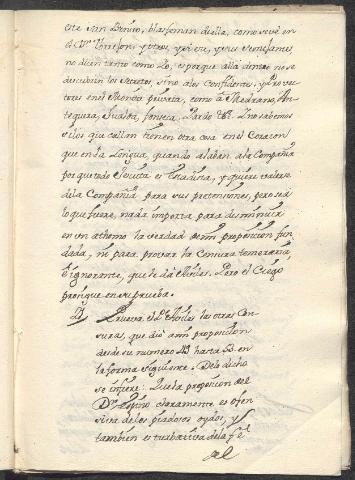 este San Benito, blasfeman della, como se ve en
el
no dicen tanto como Lo, es porque alla dentro no se
descubren los secretos, sino a los confidentes, y Pro vec
tores en el
tequera, Suarda, fonseca, Pardo &. No sabemos
si los que callan tienen otra cosa en el Corazon
que en la Lengua, quando alaban a la Compañia
por que todo Jesuita es Estadista, y quiere valerse
de la Compañia para sus pretensiones, pero sea
lo que fuere, nada importa para disminuir
en un athomo la verdad de mi proposicion fun
dada, ni para provar la censura temeraria,
è ignorante, que le da Aviles. Pero el Ciego
prosigue en su prueba.
Prueva el P. Aviles las otras Cen
suras, que dio a mi proposicion
desde su numero 49 hasta 53. en
la forma siguiente. De lo dicho
se infiere: Que la proposicion del
Dr. Espino claramente es ofen
siva de los piadosos oydos, y
tambien es turbativa de la Pe
del